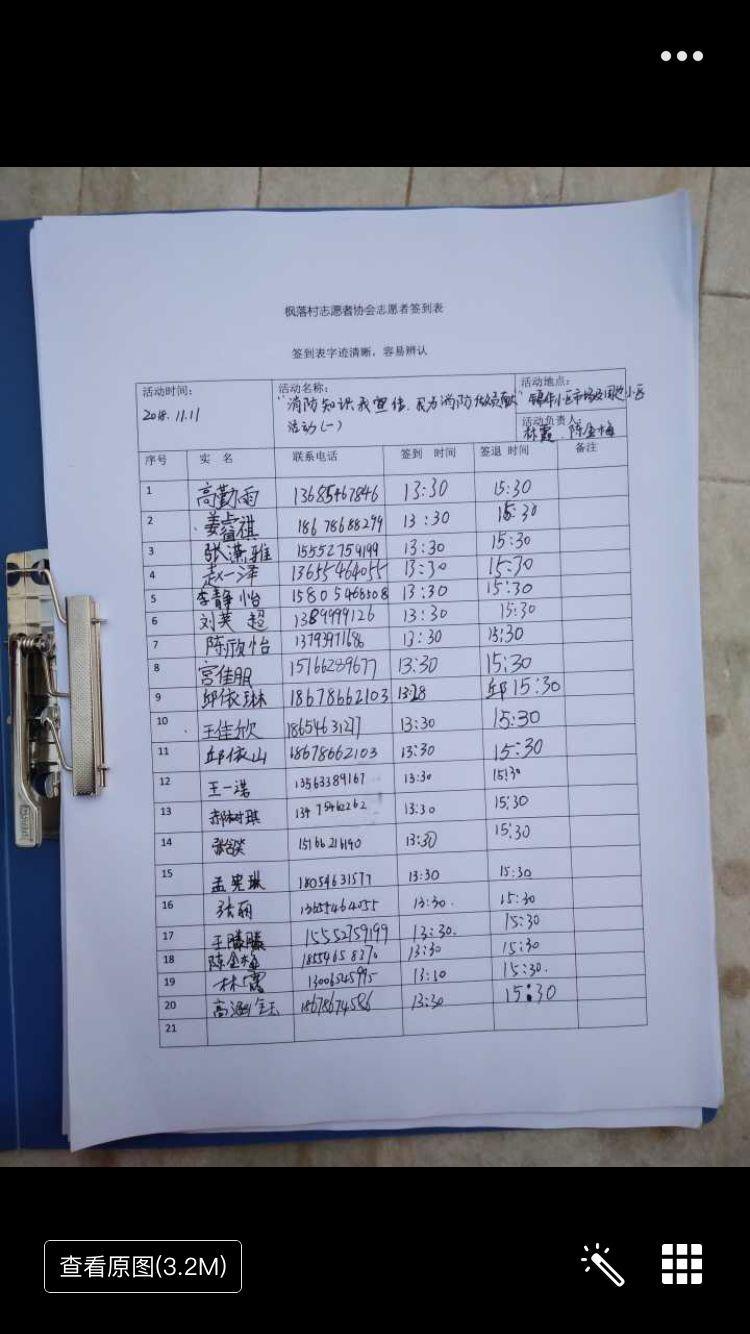 枫落村志愿者协会志愿者签到表
签到表字迹清晰，容易辨认
活动时间： 活动名称： 活动地点：
2018.11.11 "消防知识我宣传，我为消防做贡献"
活动(一) 活动负责人：
林霞、陈金梅
序号 实 名 联系电话 签到 时间 签退 时间 备注
1 高勤雨 13685467846 13:30 15:30
2 姜睿祺 18678688299 13:30 15:30
3 张潇雅 15552759199 13:30 15:30
4 赵一泽 13655464055 13:30 15:30
5 李静怡 15805466508 13:30 15:30
6 刘英超 1389999126 13:30 15:30
7 陈欣怡 13793971686 13:30 15:30
8 宫佳熙 15166289677 13:30 15:30
9 邱依琳 18678662103 13:28 邱 15:30
10 王佳欣 18654631277 13:30 15:30
11 邱依山 18678662103 13:30 15:30
12 王一诺 13563389167 13:30 15:30
13 郝树琪 13475462262 13:30 15:30
14 15166216190 13:30 15:30
15 孟宪琳 18054631577 13:30 15:30
16 张丽 13655464055 13:30. 15:30
17 王滕滕 15552759199 13:30. 15:30
18 陈金梅 18554658270 13:30 15:30
19 林霞 13006545995 13:10 15:30.
20 高涵钰 18678674586 13:30 15:30
21
查看原图(3.2M)